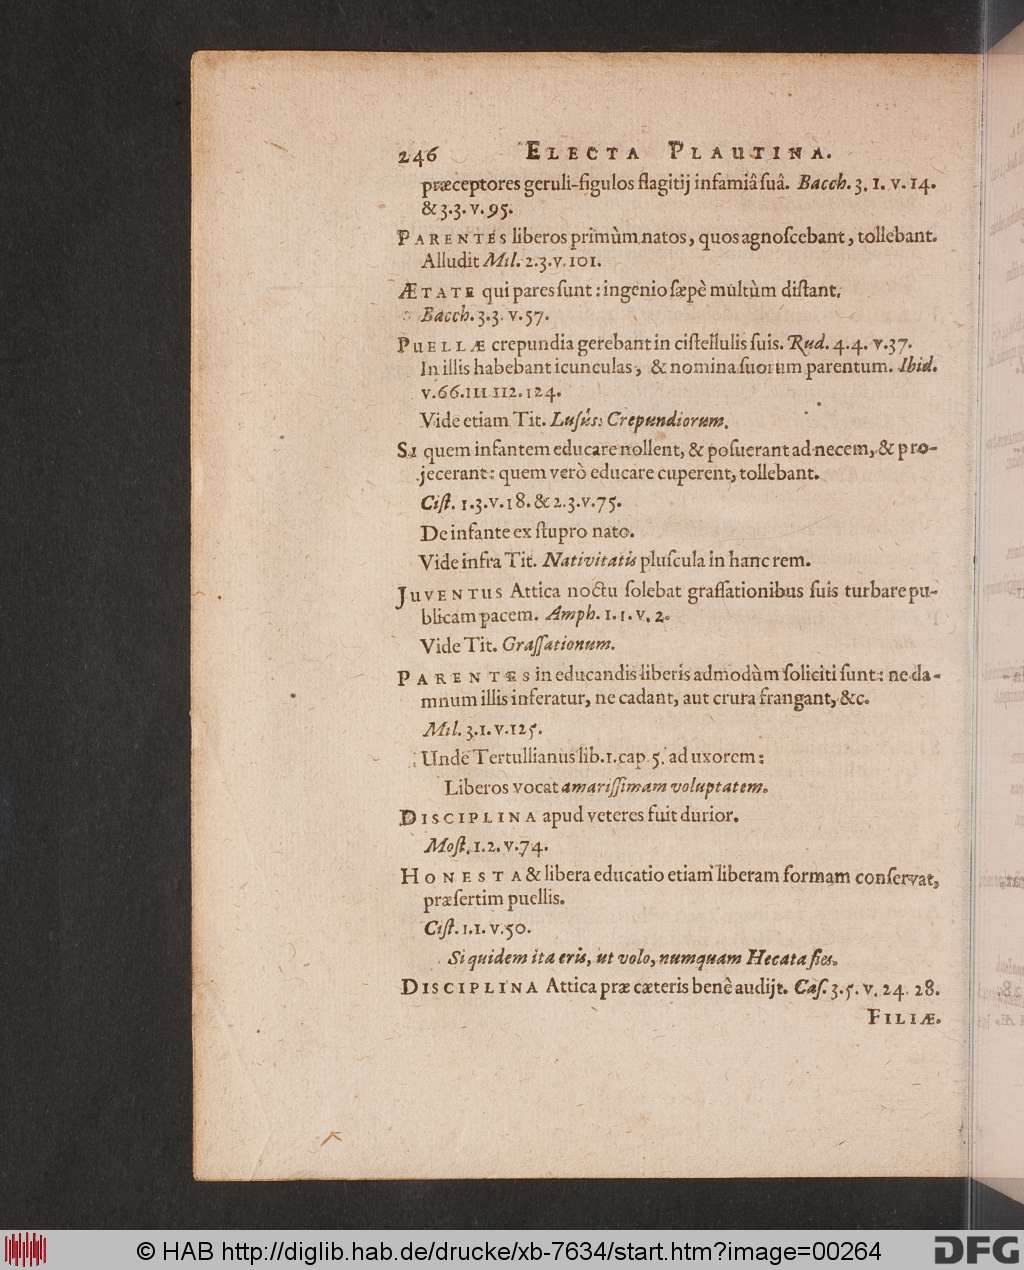 246 ELECTA PLAUTINA.
præceptores geruli-figulos flagitij infamiâ ſuâ. Bacch. 3. 1. v. 14.
& 3.3. v. 95.
PARENTES liberos primùm natos, quos agnoſcebant, tollebant.
Alludit Mil. 2.3.v.101.
ÆTATE qui pares ſunt: ingenio ſæpè multùm diſtant.
Bacch. 3.3. v.57.
PUELLÆ crepundia gerebant in ciſtellulis ſuis. Rud. 4.4. v.37.
In illis habebant icunculas, & nomina ſuorum parentum. Ibid.
v.66.111.112.124.
Vide etiam Tit. Luſûs: Crepundiorum.
SI quem infantem educare nollent, & poſuerant ad necem, & pro-
jecerant: quem verò educare cuperent, tollebant.
Ciſt. 1.3.v.18. & 2.3.v.75.
De infante ex ſtupro nato.
Vide infra Tit. Nativitatis pluſcula in hanc rem.
JUVENTUS Attica noctu ſolebat graſſationibus ſuis turbare pu-
blicam pacem. Amph. 1.1. v. 2.
Vide Tit. Graſſationum.
PARENTES in educandis liberis admodùm ſoliciti ſunt: ne da-
mnum illis inferatur, ne cadant, aut crura frangant, &c.
Mil. 3.1. v.125.
Unde Tertullianus lib.1.cap.5. ad uxorem:
Liberos vocat amariſſimam voluptatem.
DISCIPLINA apud veteres fuit durior.
Moſt. 1.2. v.74.
HONESTA & libera educatio etiam liberam formam conſervat,
præſertim puellis.
Ciſt. 1.1. v.50.
Si quidem ita eris, ut volo, numquam Hecata fies.
DISCIPLINA Attica præ cæteris benè audijt. Caſ. 3.5. v. 24. 28.
FILIÆ.
© HAB http://diglib.hab.de/drucke/xb-7634/start.htm?image=00264
DFG